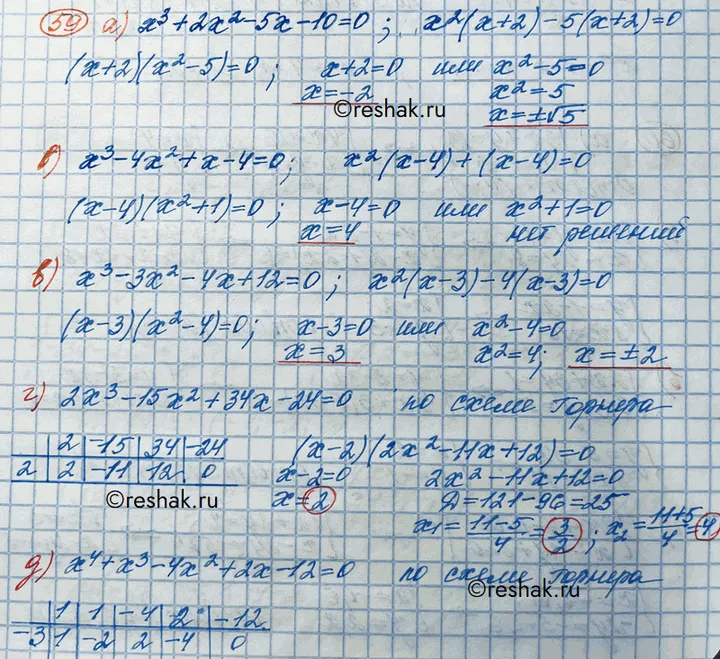 59 а) x³+2x²-5x-10=0; x²(x+2)-5(x+2)=0
(x+2)(x²-5)=0; x+2=0 или x²-5=0
x=-2 x²=5
©reshak.ru
x=±√5
б) x³-4x²+x-4=0; x²(x-4)+(x-4)=0
(x-4)(x²+1)=0; x-4=0 или x²+1=0
x=4 нет решений
в) x³-3x²-4x+12=0; x²(x-3)-4(x-3)=0
(x-3)(x²-4)=0; x-3=0 или x²-4=0
x=3 x²=4; x=±2
г) 2x³-15x²+34x-24=0 по схеме Горнера
2 -15 34 -24 (x-2)(2x²-11x+12)=0
2 2 -11 12 0 x-2=0 2x²-11x+12=0
©reshak.ru x=2 Д=121-96=25
x₁=(11-5)/4=3/2; x₂=(11+5)/4=4
д) x⁴+x³-4x²+2x-12=0 по схеме Горнера
©reshak.ru
1 1 -4 2 -12
-3 1 -2 2 -4 0